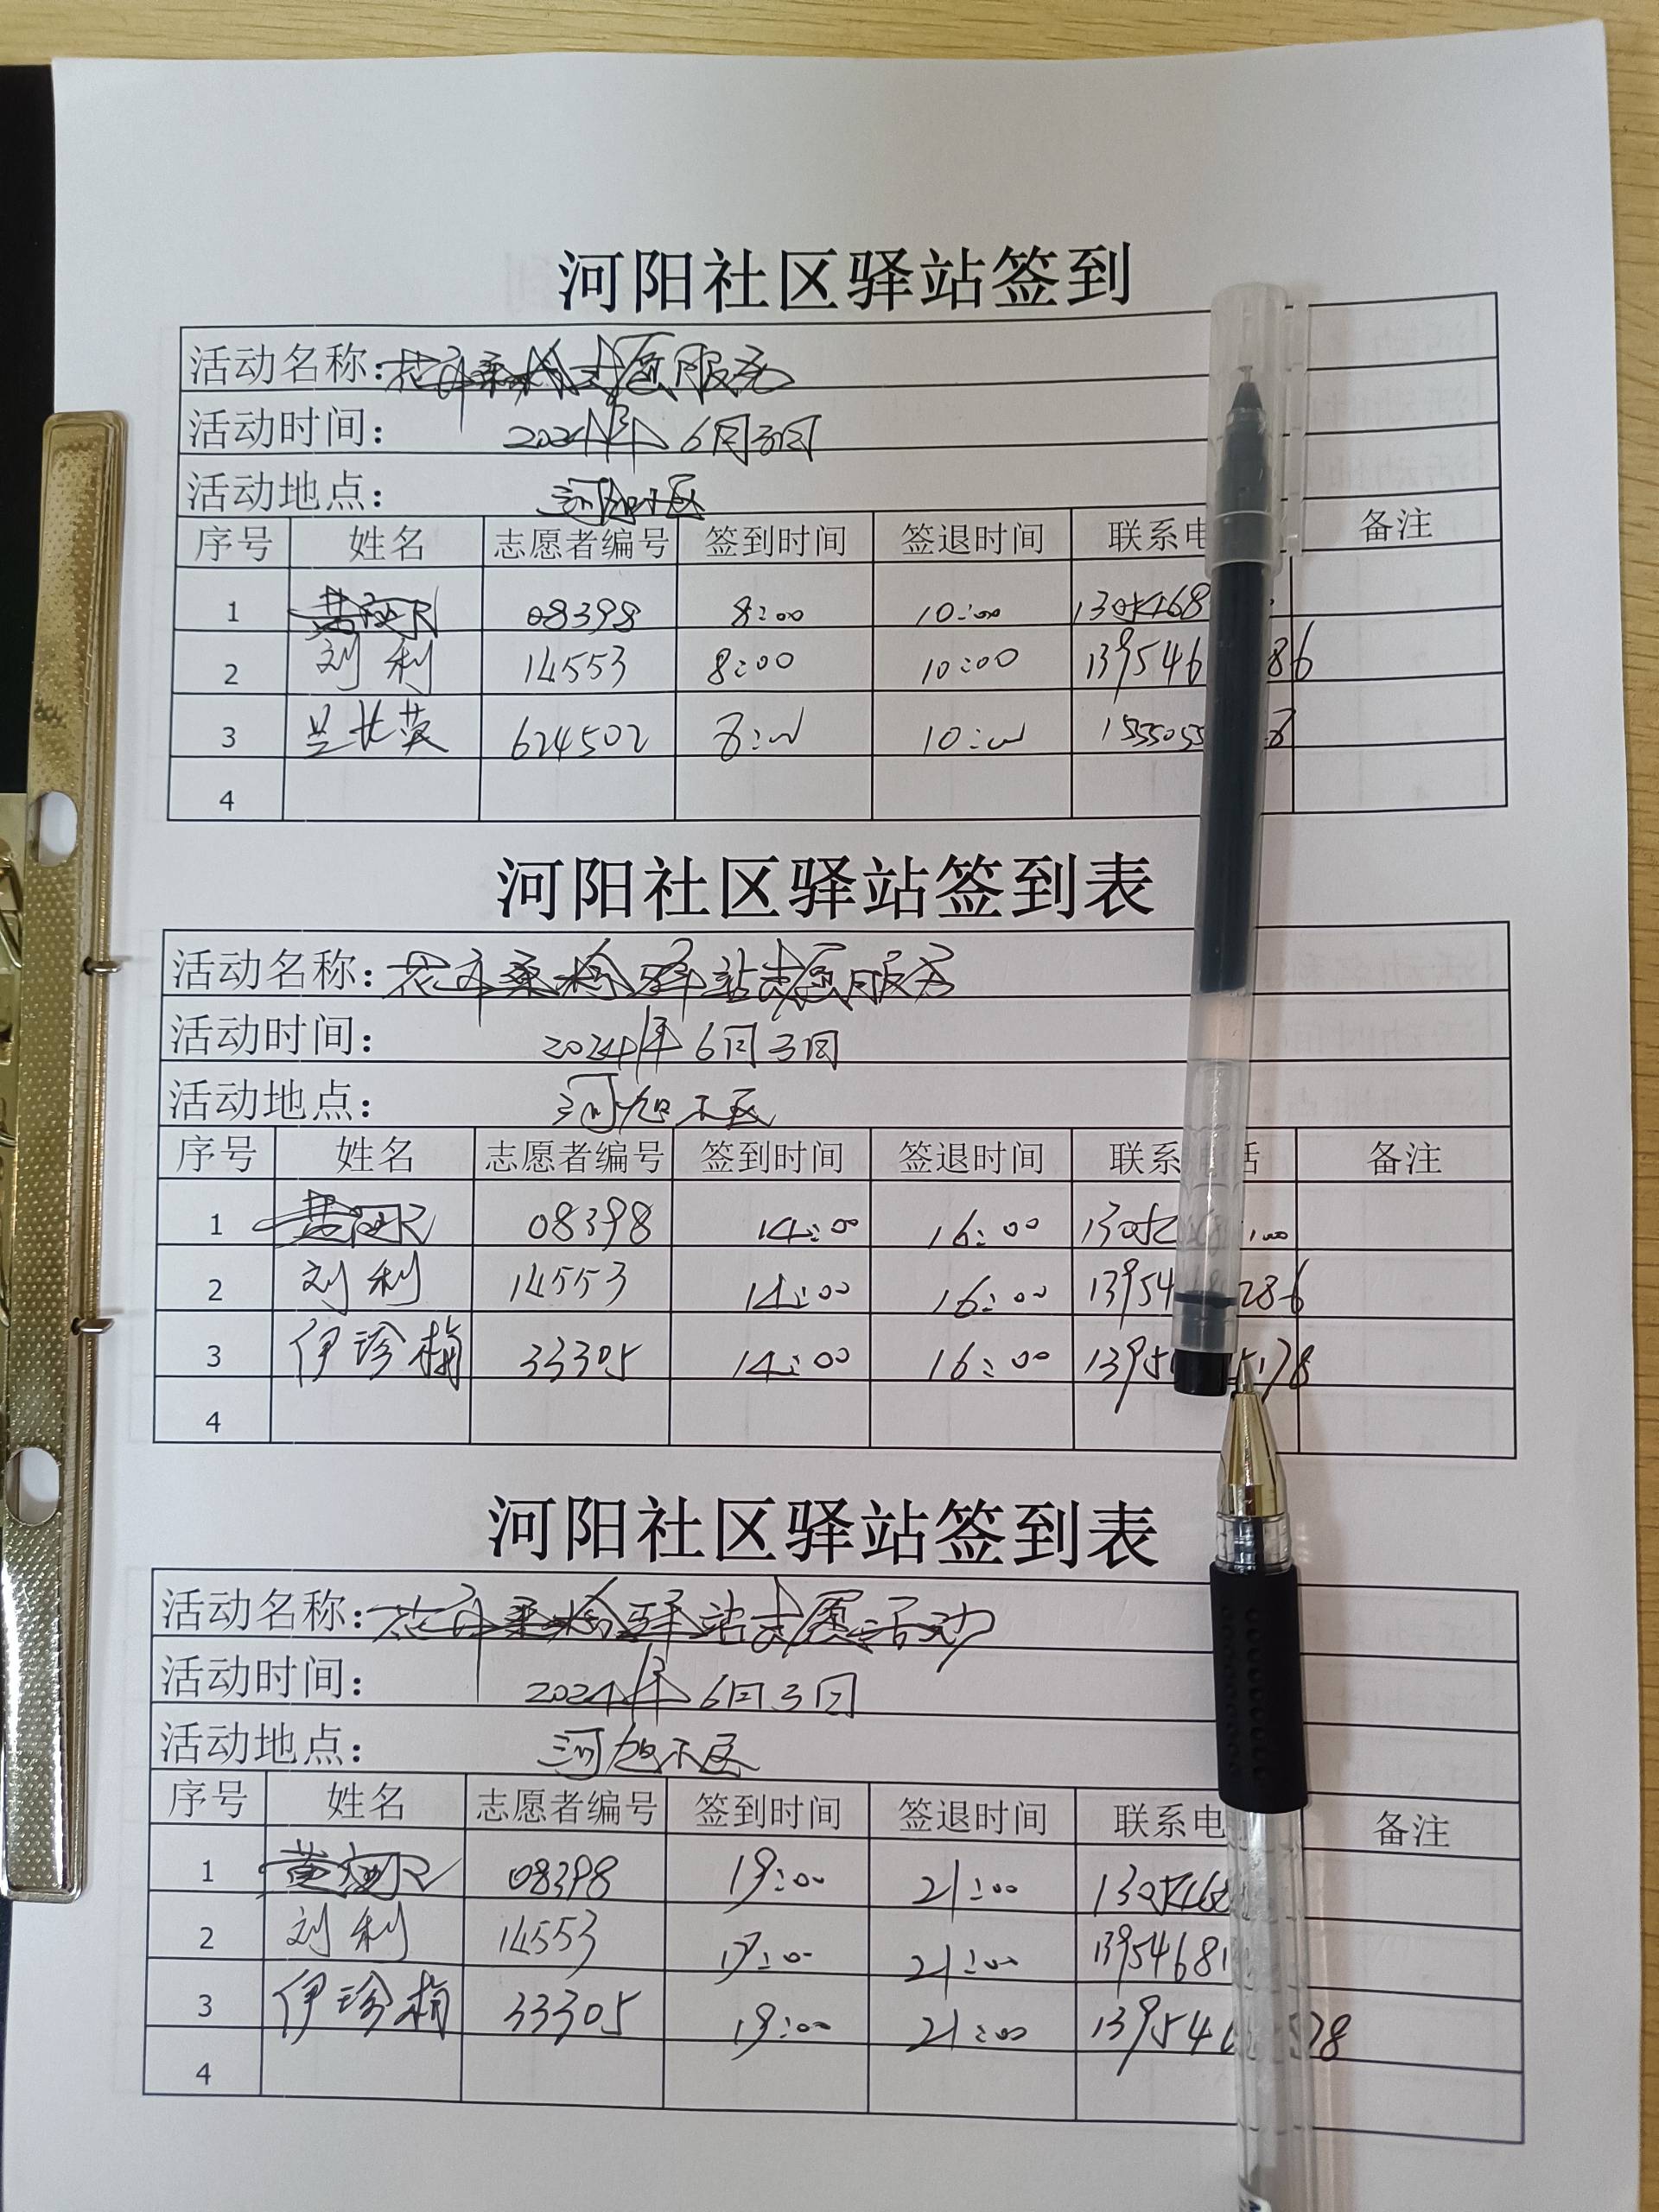 河阳社区驿站签到
活动名称：志愿服务
活动时间： 2024年6月3日
活动地点：
序号 姓名 志愿者编号 签到时间 签退时间 联系电 备注
1 08398 8:00 10:00
2 刘利 14553 8:00 10:00 139546 86
3 兰长英 624502 8:00 10:00 1555055 8
4
河阳社区驿站签到表
活动名称：驿站志愿服务
活动时间： 2024年6月3日
活动地点：
序号 姓名 志愿者编号 签到时间 签退时间 联系 话 备注
1 08398 14:00 16:00
2 刘利 14553 14:00 16:00 13954 286
3 伊珍梅 33305 14:00 16:00 1395 178
4
河阳社区驿站签到表
活动名称：驿站志愿活动
活动时间： 2024年6月3日
活动地点：
序号 姓名 志愿者编号 签到时间 签退时间 联系电 备注
1 08398 19:00 21:00
2 刘利 14553 19:00 21:00 13954681
3 伊珍梅 33305 19:00 21:00 13954 578
4